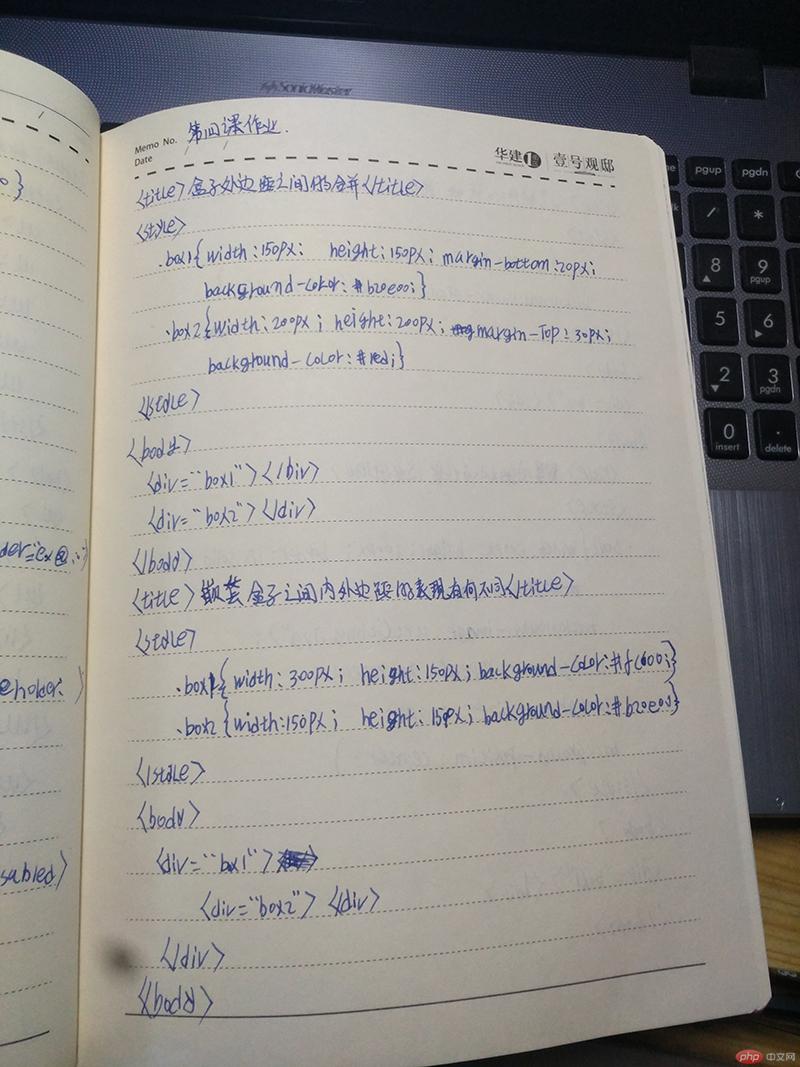 SonicMaster
Memo No. 第四课作业.
Date
华建1 壹号观邸
<title>盒子外边距之间的合并</title>
<style>
.box1{width:150px; height:150px; margin-bottom:20px;
background-color:#b20e00;}
.box2{width:200px; height:200px; margin-Top:30px;
background-color:#red;}
</style>
<body>
<div="box1"></div>
<div="box2"></div>
</body>
<title>嵌套盒子之间内外边距的表现有何不同</title>
<style>
.box1{width:300px; height:150px; background-color:#fc600;}
.box2{width:150px; height:150px; background-color:#b20e00}
</style>
<body>
<div="box1">
<div="box2"></div>
</div>
</body>
eholder:
sabled>
pgup pgdn
/ *
8 9 pgup
5 6
2 3 pgdn
0 insert . delete
php 中文网